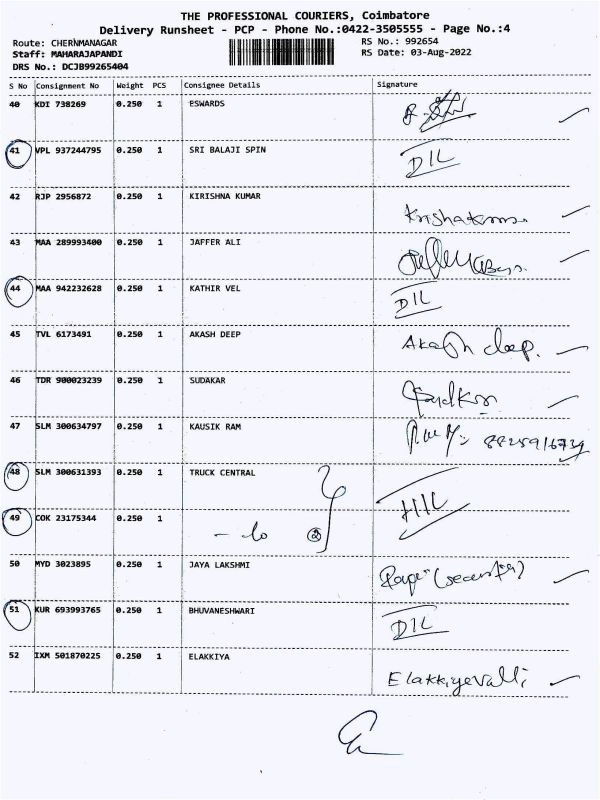 THE PROFESSIONAL COURIERS, Coimbatore
Delivery Runsheet - PCP - Phone No.:0422-3505555 - Page No.:4
Route: CHERNMANAGAR
RS No.: 992654
Staff: MAHARAJAPANDI
RS Date: 03-Aug-2022
DRS No.: DCJB99265404
S No Consignment No Weight PCS Consignee Details Signature
40 KDI 738269 0.250 1 ESWARDS
41 VPL 937244795 0.250 1 SRI BALAJI SPIN DIL
42 RJP 2956872 0.250 1 KIRISHNA KUMAR
43 MAA 289993400 0.250 1 JAFFER ALI
44 MAA 942232628 0.250 1 KATHIR VEL DIL
45 TVL 6173491 0.250 1 AKASH DEEP Akash deep.
46 TDR 900023239 0.250 1 SUDAKAR
47 SLM 300634797 0.250 1 KAUSIK RAM 8825916739
48 SLM 300631393 0.250 1 TRUCK CENTRAL
49 COK 23175344 0.250 1 - lo 2
50 MYD 3023895 0.250 1 JAYA LAKSHMI
51 KUR 693993765 0.250 1 BHUVANESHWARI DIL
52 IXM 501870225 0.250 1 ELAKKIYA Elakkiyavalli